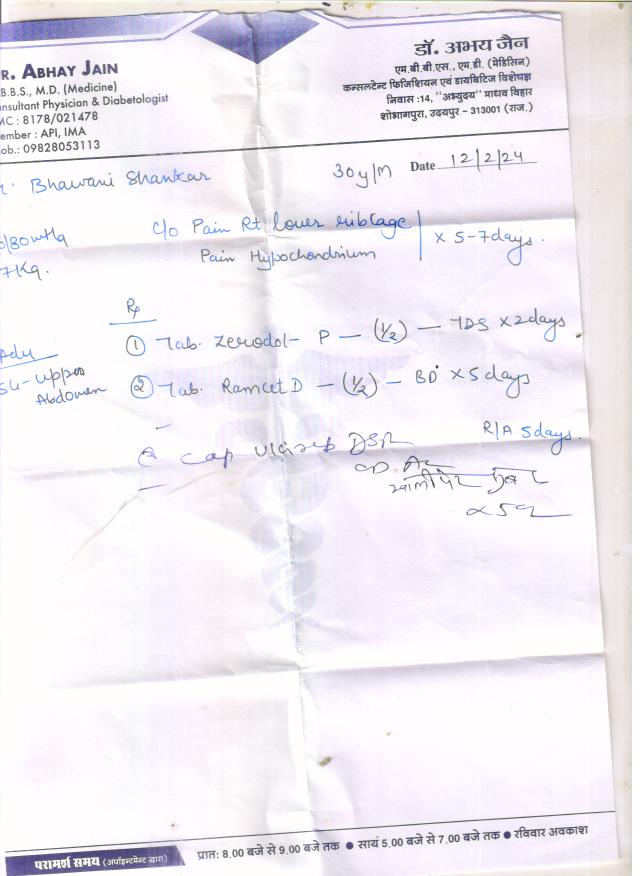 R. ABHAY JAIN
B.B.S., M.D. (Medicine)
onsultant Physician & Diabetologist
MC : 8178/021478
ember : API, IMA
ob.: 09828053113
डॉ. अभय जैन
एम.बी.बी.एस., एम.डी. (मेडिसिन)
कन्सलटेन्ट फिजिशियन एवं डायबिटिज विशेषज्ञ
निवास :14, "अभ्युदय" माधव विहार
शोभागपुरा, उदयपुर - 313001 (राज.)
Bhawani Shankar 30y/M Date 12/2/24
/80mmHg
7Kg.
c/o Pain Rt lower ribcage
Pain Hypochondrium
x 5-7days.
Rx
① Tab. Zerodol-P – (1/2) – TDS x 2days
Adv
USG-Upper
Abdomen
② Tab. Ramcet D – (1/2) – BD x 5 days
R/A 5days.
Cap DSR
OD AC
खाली पेट
x 5
परामर्श समय (अपॉइन्टमेन्ट द्वारा)
प्रातः 8.00 बजे से 9.00 बजे तक ● सायं 5.00 बजे से 7.00 बजे तक ● रविवार अवकाश